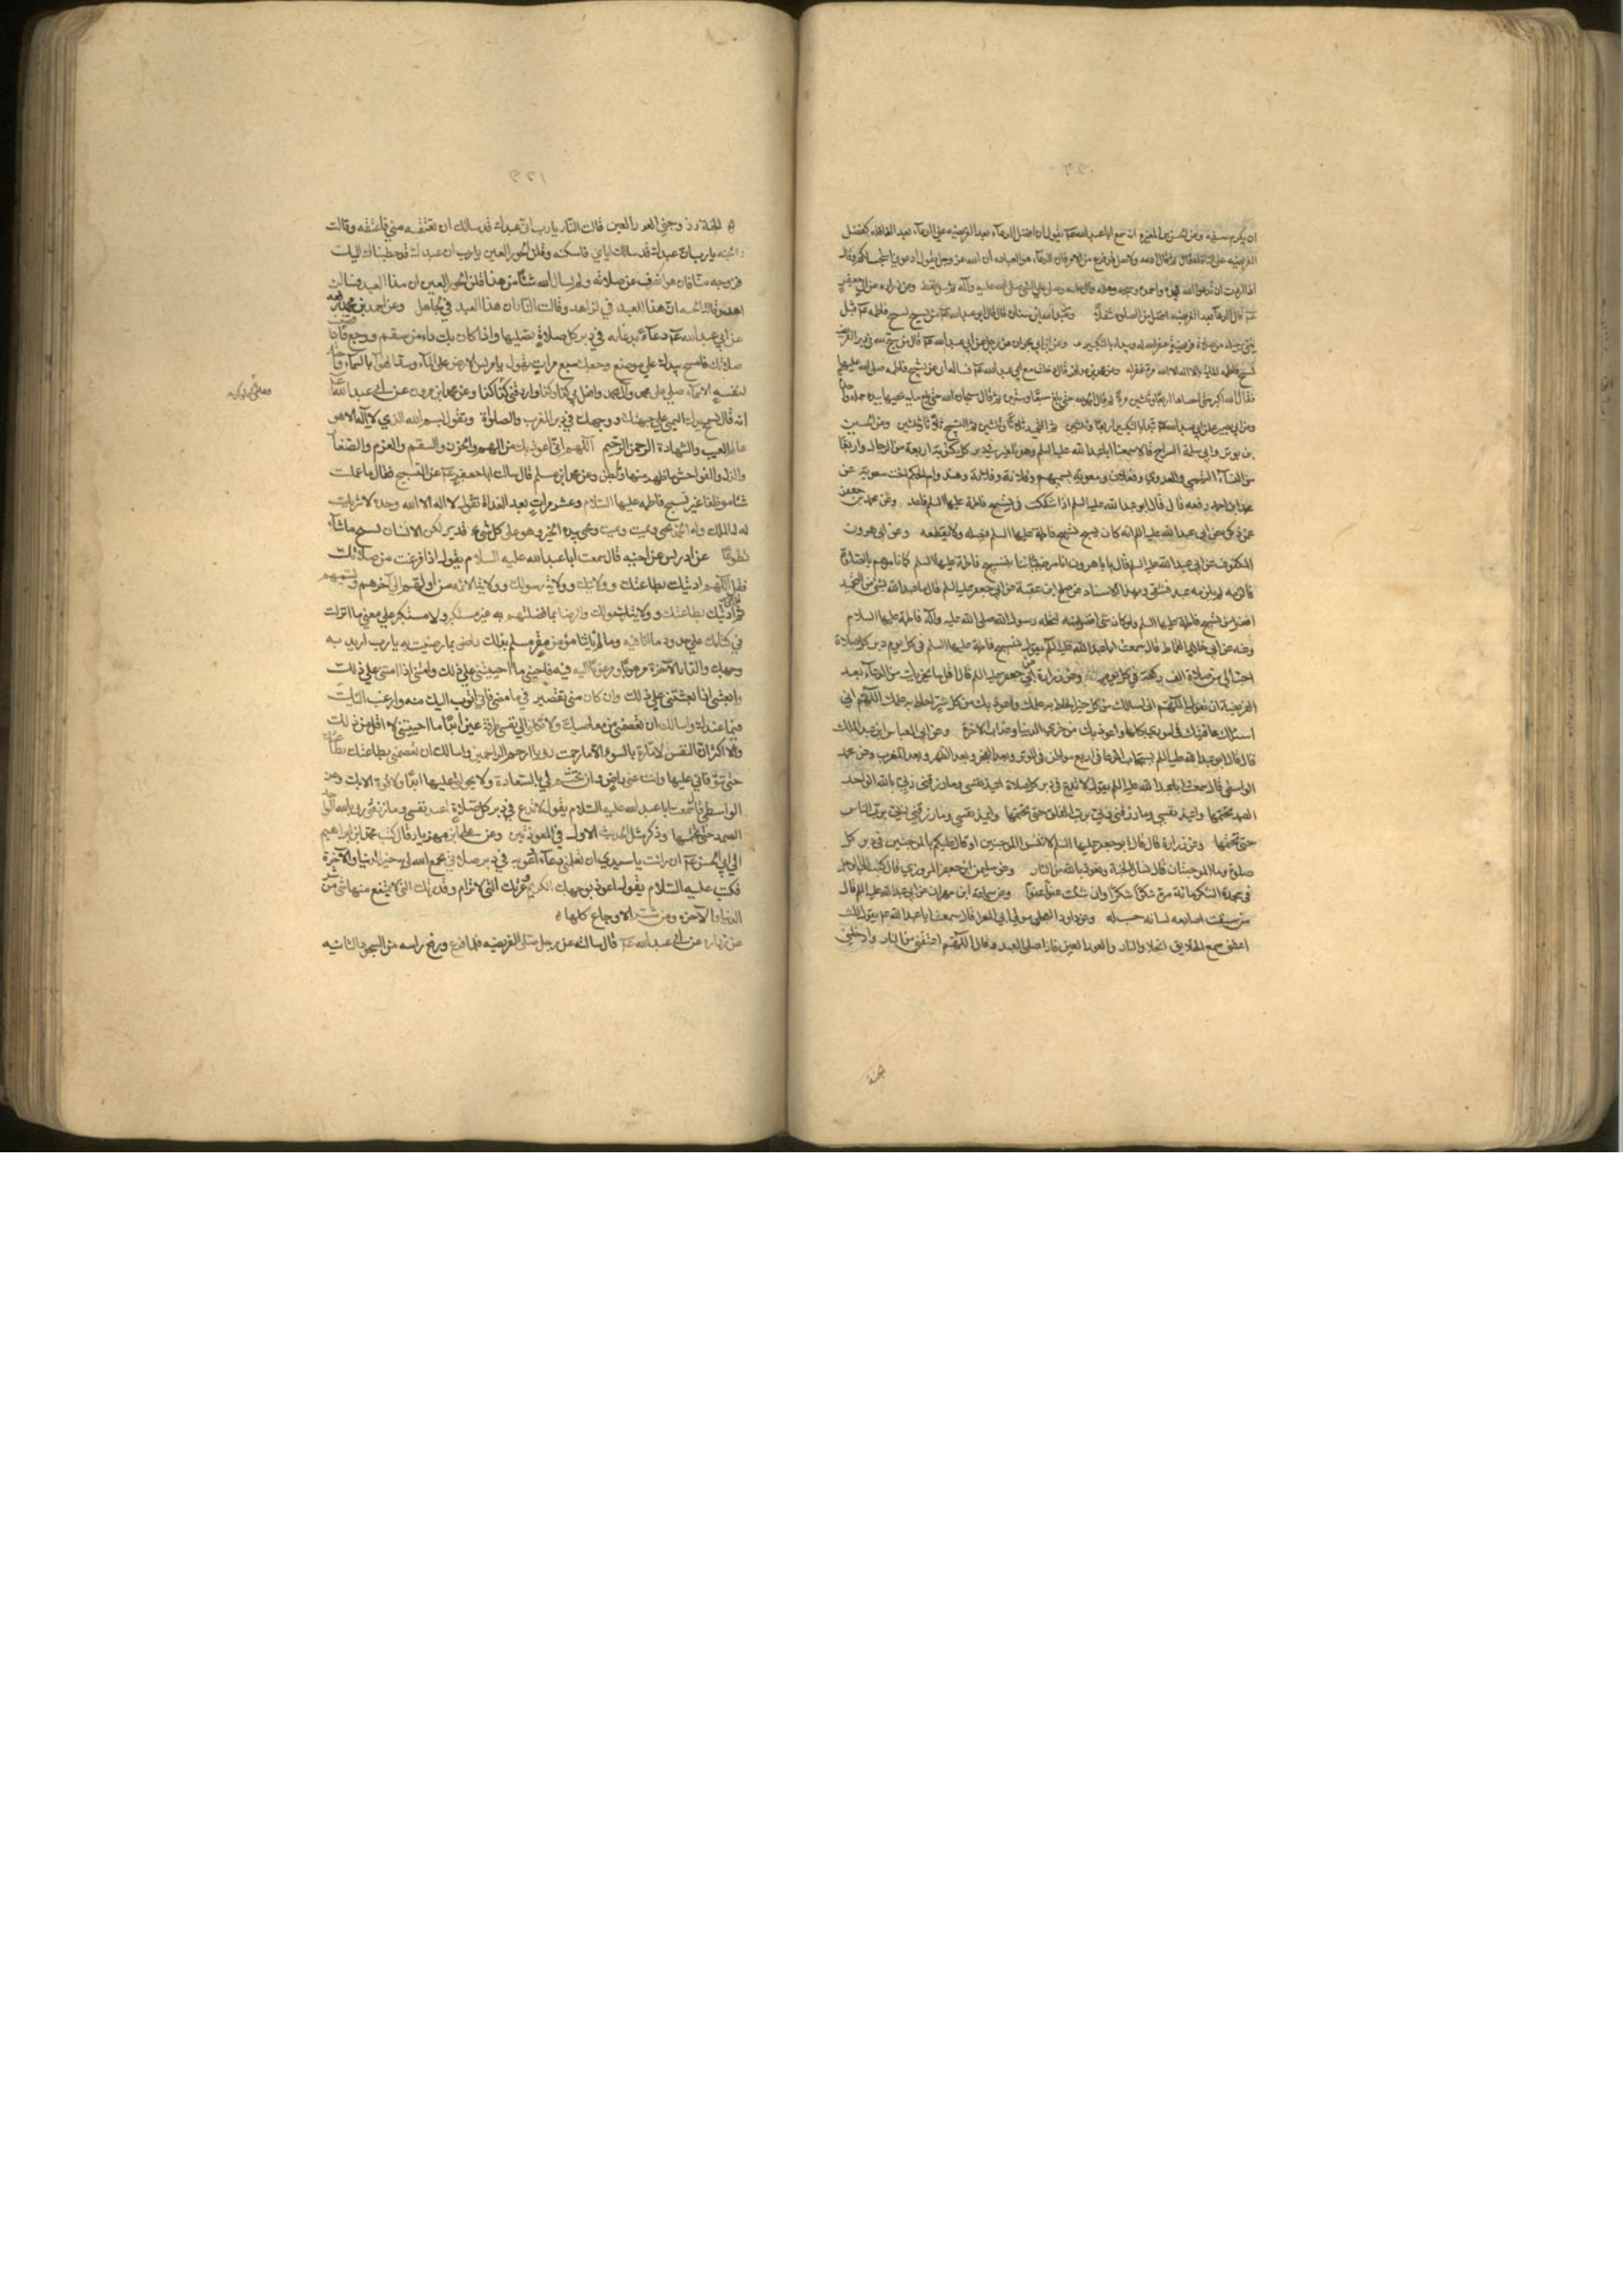 ان يكرم سيفه وعن الحسن بن المغيرة انه سمع ابا عبد الله عم يقول ان افضل الدعاء بعد الفريضه علي الدعاء بعد النافله كفضل
الفريضه علي النافله قال ثم قال ادعه ولا تقل قد فرغ من الامر فان الدعاء هو العباده ان الله عز وجل يقول ادعوني استجب لكم وقال
اذا اردت ان تدعو الله فمجده واحمده وسبحه وهلله واثن عليه وصل علي النبي صلي الله عليه وآله ثم سل تعط وعن زراره عن ابي جعفر
عم قال الدعاء بعد الفريضه افضل من الصلوة تنفلا وعن عبد الله ابن سنان قال قال ابو عبد الله عم من سبح تسبيح فاطمه عم قبل
يثني رجليه من صلاة فريضة غفر الله له ويبداء بالتكبير وعن ابن ابي نجران عن رجل عن ابي عبد الله عم قال من سبح الله في دبر الفريضه
تسبيح فاطمه المائة بلا اله الا الله مرة غفر له وعن محمد بن عذافر قال دخلت مع ابي علي ابي عبد الله عم فساله ابي عن تسبيح فاطمه صلي الله عليها
فقال الله اكبر حتي احصاها اربعا وثلثين مرة ثم قال الحمد لله حتي بلغ سبعا وستين ثم قال سبحان الله حتي بلغ مايه يحصيها بيده جملة واحدة
وعن ابي بصير عن ابي عبد الله عم تبدا بالتكبير اربعا وثلثين ثم التحميد ثلاثا وثلثين ثم التسبيح ثلاثا وثلثين وعن الحسين
بن ثوير وابي سلمة السراج قالا سمعنا ابا عبد الله عليه السلم وهو يلعن في دبر كل مكتوبة اربعة من الرجال واربعا
من النساء التيمي والعدوي وفعلان ومعوية يسميهم وفلانة وفلانة وهند وام الحكم اخت معوية وعن
محمد ابن احمد رفعه قال قال ابو عبد الله عليه السلم اذا شككت في تسبيح فاطمة عليها السلم فاعد وعن محمد بن جعفر
عمن ذكره عن ابي عبد الله عليه السلم انه كان يسبح تسبيح فاطمة عليها السلم فيصله ولا يقطعه وعن ابي هرون
المكفوف عن ابي عبد الله عليه السلم قال يا باهرون انا نامر صبياننا بتسبيح فاطمة عليها السلم كما نامرهم بالصلوة
فالزمه فانه لم يلزمه عبد فشقي وبهذا الاسناد عن صالح ابن عقبة عن ابي جعفر عليه السلم قال ما عبد الله بشئ من التحميد
افضل من تسبيح فاطمة عليها السلم ولو كان شئ افضل منه لنحله رسول الله صلي الله عليه وآله فاطمة عليها السلام
وعنه عن ابي خالد القماط قال سمعت ابا عبد الله عليه السلم يقول تسبيح فاطمة عليها السلم في كل يوم دبر كل صلاة
احب الي من صلاة الف ركعة في كل يوم وعن زرارة عن ابي جعفر عليه السلم قال اقل ما يجزيك من الدعاء بعد
الفريضة ان تقول اللهم اني اسالك من كل خير احاط به علمك واعوذ بك من كل شر احاط به علمك اللهم اني
اسئلك عافيتك في اموري كلها واعوذ بك من خزي الدنيا وعذاب الاخرة وعن ابي العباس ابن عبد الملك
قال قال ابو عبد الله عليه السلم يستجاب الدعا في اربع مواطن في الوتر وبعد الفجر وبعد الظهر وبعد المغرب وعن محمد
الواسطي قال سمعت ابا عبد الله عليه السلم يقول لا تدع في دبر كل صلاة اعيذ نفسي وما رزقني ربي بالله الواحد
الصمد حتي تختمها واعيذ نفسي وما رزقني ربي برب الفلق حتي تختمها واعيذ نفسي وما رزقني ربي برب الناس
حتي تختمها وعن زرارة قال قال ابو جعفر عليه السلم لا تنسوا الموجبتين او قال عليكم بالموجبتين في دبر كل
صلوة وما الموجبتان قال تسال الجنة وتعوذ بالله من النار وعن سليمن ابن حفص المروزي قال كتب الي الرجل
في سجدة الشكر مائة مرة شكرا شكرا وان شئت عفوا عفوا وعن سماعة ابن مهران عن ابي عبد الله عليه السلم قال
من سبقت اصابعه لسانه حسب له وعن داود العجلي مولي ابي المعزا قال سمعت ابا عبد الله عم يقول ثلث
اعطين سمع الخلايق الجنة والنار والحور العين فاذا صلي العبد وقال اللهم اعتقني من النار وادخلني
الجنة وزوجني الحور العين قالت النار يا رب ان عبدك قد سالك ان تعتقه مني فاعتقه وقالت
الجنه يا رب ان عبدك قد سالك اياي فاسكنه وقلن الحور العين يا رب ان عبدك قد خطبنا اليك
فزوجه منا فان هو انصرف عن صلاته ولم يسال الله شئا من هذا قلن الحور العين ان هذا العبد فينا لزاهد
وقالت الجنه ان هذا العبد في لزاهد وقالت النار ان هذا العبد في لجاهل وعن احمد بن محمد رفعه
عن ابي عبد الله عم دعاء يدعا به في دبر كل صلاة تصليها واذا كان بك داء من سقم ووجع فاذا قضيت
صلاتك فامسح بيدك علي موضع
لنفسه الا
انه قال تمسح بيدك اليمني علي جبهتك ووجهك في دبر المغرب والصلوة وتقول بسم الله الذي لا اله الا هو
عالم الغيب والشهادة الرحمن الرحيم اللهم اني اعوذ بك من الهم والحزن والسقم والعدم والصغار
والذل والفواحش ما ظهر منها وما بطن وعن محمد ابن مسلم قال سالت ابا جعفر عم عن التسبيح فقال ما علمت
شئا موظفا غير تسبيح فاطمه عليها السلام وعشر مرات بعد الغداة تقول لا اله الا الله وحده لا شريك
له له الملك وله الحمد يحيي ويميت ويميت ويحيي بيده الخير وهو علي كل شئ قدير لكن الانسان يسبح ما شاء
تطوعا عن ادريس عن اخيه قال سمعت ابا عبد الله عليه السلام يقول اذا فرغت من صلاتك
فقل اللهم اني ادينك بطاعتك وولايتك وولاية رسولك وولاية الائمة من اولهم الي آخرهم وتسميهم
ثم قل ادينك بطاعتك وولايتك وولايتهم والرضا بما فضلتهم به غير متكبر ولا مستكبر علي معني ما انزلت
في كتابك علي حدود ما اتانا فيه وما لم ياتنا مؤمن مقر مسلم بذلك راض بما رضيت به يا رب اريد به
وجهك والدار الآخرة مرهوبا ومرغوبا اليه فيه فاحيني ما احييتني علي ذلك وامتني اذا امتني علي ذلك
وابعثني اذا بعثتني علي ذلك وان كان مني تقصير فيما مضي فاني اتوب اليك منه وارغب اليك
فيما عندك واسالك ان تعصمني من معاصيك ولا تكلني الي نفسي طرفة عين ابدا ما احييتني لا اقل من ذلك
ولا اكثر ان النفس لامارة بالسوء الا ما رحمت يا ارحم الراحمين واسالك ان تعصمني بطاعتك
حتي تتوفاني عليها وانت عني راض وان تختم لي بالسعادة ولا تحولني عنها ابدا ولا قوة الا بك وعن
الواسطي قال سمعت ابا عبد الله عليه السلام يقول لا تدع في دبر كل صلاة اعيذ نفسي وما رزقني ربي بالله الواحد
الصمد حتي تختمها وذكر مثل الحديث الاول في المعوذتين وعن علي ابن مهزيار قال كتب محمد ابن ابراهيم
الي ابي الحسن عم ان رايت يا سيدي ان تعلمني دعاء ادعو به في دبر صلاتي يجمع الله لي به خير الدنيا والآخرة
فكتب عليه السلام يقول اعوذ بوجهك الكريم وعزتك التي لا ترام وقدرتك التي لا يمتنع منها شئ من شر
الدنيا والآخرة ومن شر الاوجاع كلها
عن زراره عن ابي عبد الله عم قال سالته عن رجل صلي الفريضه فلما فرغ ورفع راسه من السجود الثانيه